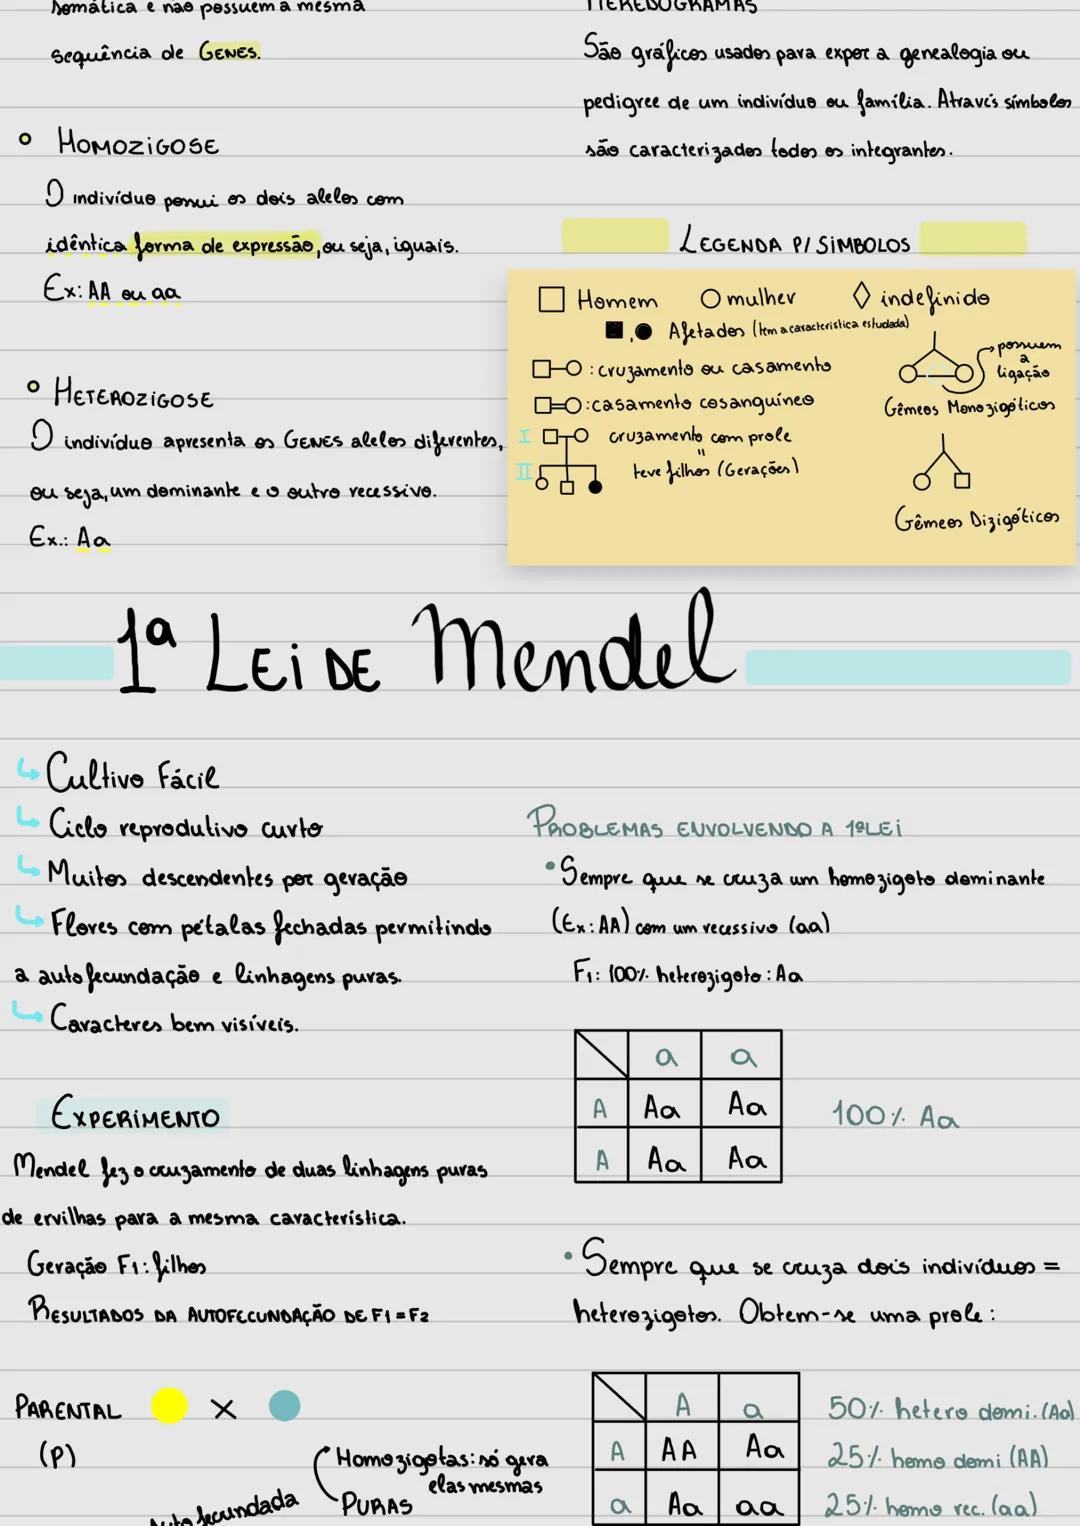 somática e não possuem a mesma
sequência de GENES.
HOMOZIGOSE
O indivíduo possui os dois alelos com
idêntica forma de expressão, ou seja, iguais.
Ex: AA ou aa
HETEROZIGOSE
O indivíduo apresenta os GENES alelos diferentes,
ou seja, um dominante e o outro recessivo.
Ex.: Aa
HEREDOGRAMAS
São gráficos usados para expor a genealogia ou
pedigree de um indivíduo ou família. Através símbolos
são caracterizados todos os integrantes.
LEGENDA P/ SIMBOLOS
Homem mulher indefinido
, Afetados (tem a caracteristica estudada)
: cruzamento ou casamento
: casamento cosanguíneo
I cruzamento com prole
"
II teve filhos (Gerações)
possuem
a
ligação
Gêmeos Monozigóticos
Gêmeos Dizigóticos
1ª LEI DE Mendel
Cultivo Fácil
Ciclo reprodutivo curto
Muitos descendentes por geração
Flores com pétalas fechadas permitindo
a autofecundação e linhagens puras.
Caracteres bem visíveis.
EXPERIMENTO
Mendel fez o cruzamento de duas linhagens puras
de ervilhas para a mesma característica.
Geração F1: filhos
RESULTADOS DA AUTOFECUNDAÇÃO DE F1 = F2
PARENTAL X
(P)
Homozigotas: só gera
elas mesmas
PURAS
Autofecundada
PROBLEMAS ENVOLVENDO A 1ªLEI
• Sempre que se cruza um homozigoto dominante
(Ex: AA) com um recessivo (aa)
F1: 100% heterozigoto: Aa
a a
A Aa Aa
A Aa Aa
100% Aa
• Sempre que se cruza dois indivíduos =
heterozigotos. Obtem-se uma prole:
A a
A AA Aa
a Aa aa
50% hetero domi. (Aa)
25% homo domi (AA)
25% homo rec. (aa)